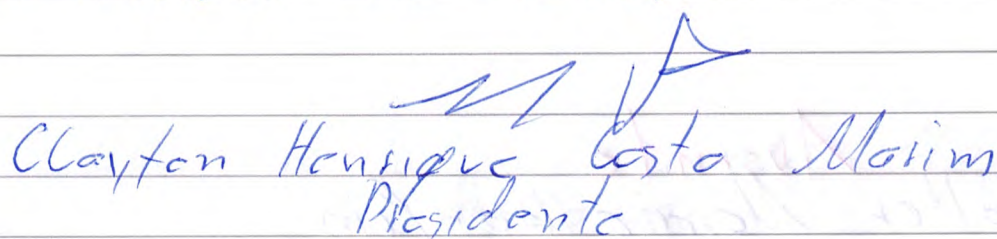 Clayton Henrique Costa Marim
Presidente